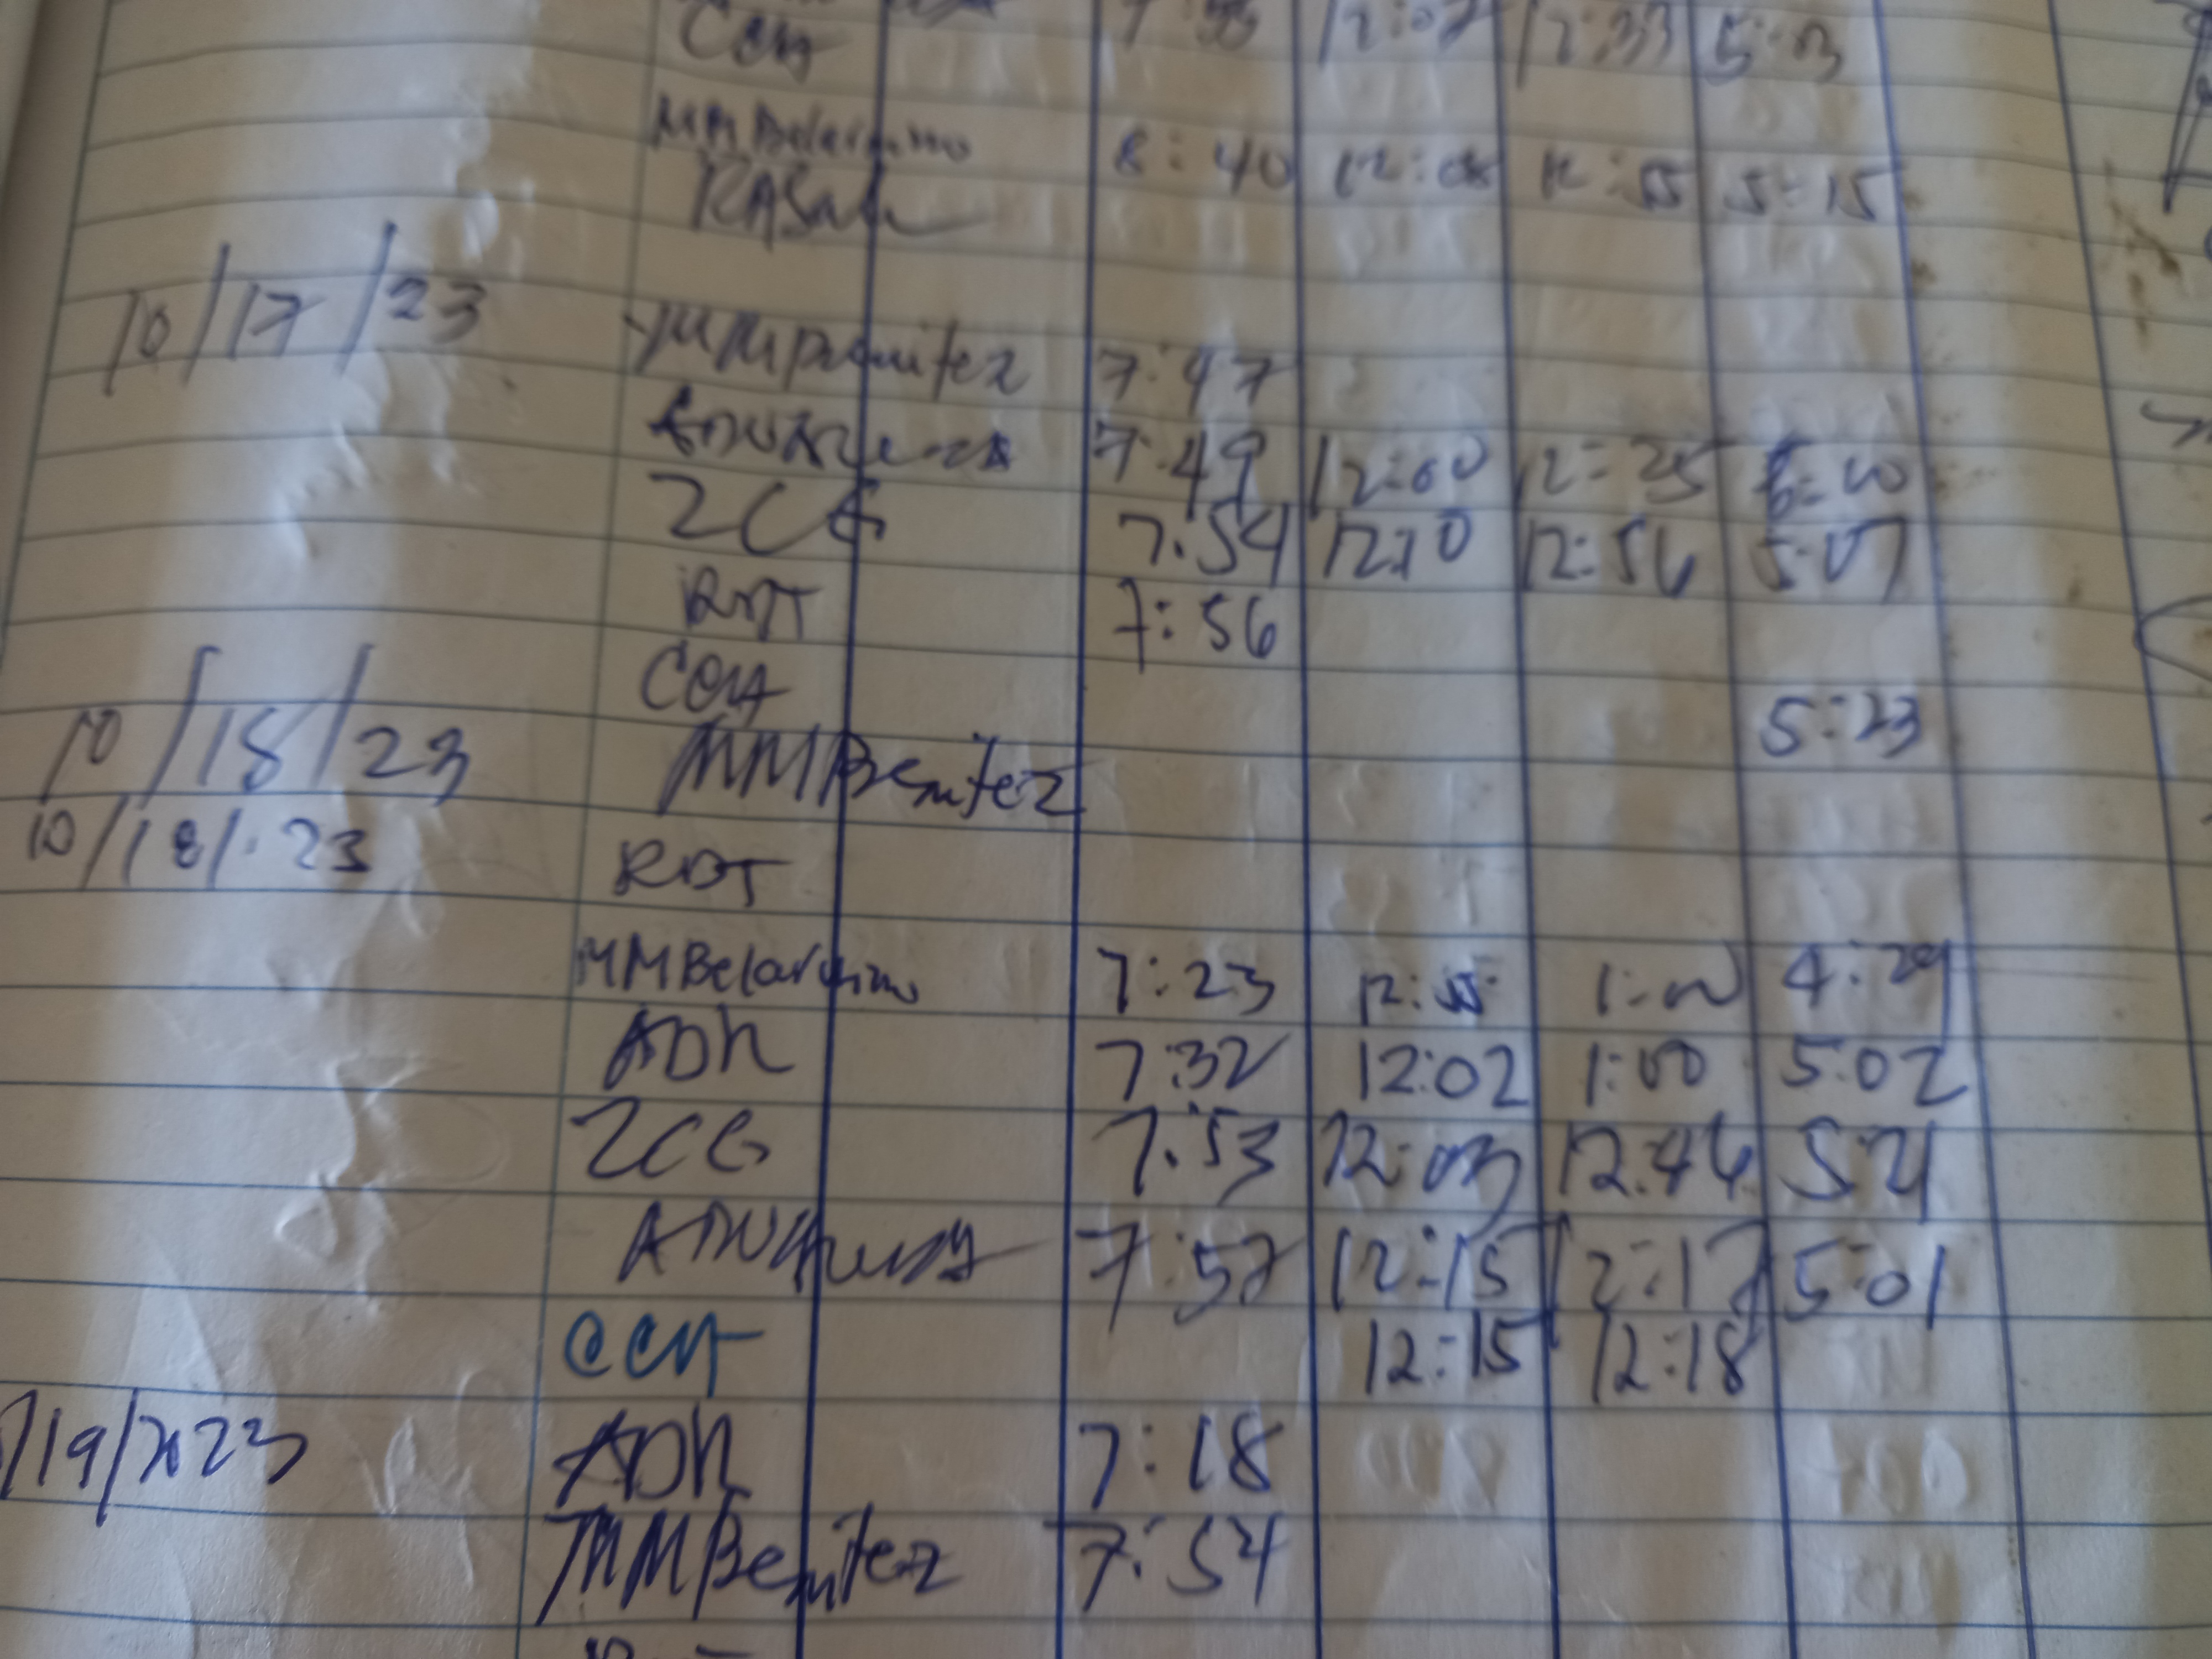 12:33 5:03
MMBelarmino 8:40 12:08 12:55 5:15
10/17/23 MMBenitez 7:47
7:49 12:00 12:25
ZCG 7:54 12:10 12:56 5:07
RDT 7:56
5:23
10/18/23 MMBenitez
10/18/23 RDT
MMBelarmino 7:23 12:55 1:00 4:29
ADR 7:32 12:02 1:00 5:02
ZCG 7:53 12:03 12:46 5:21
7:57 12:15 12:17 5:01
CCH 12:15 12:18
/19/2023 ADR 7:18
MMBenitez 7:54